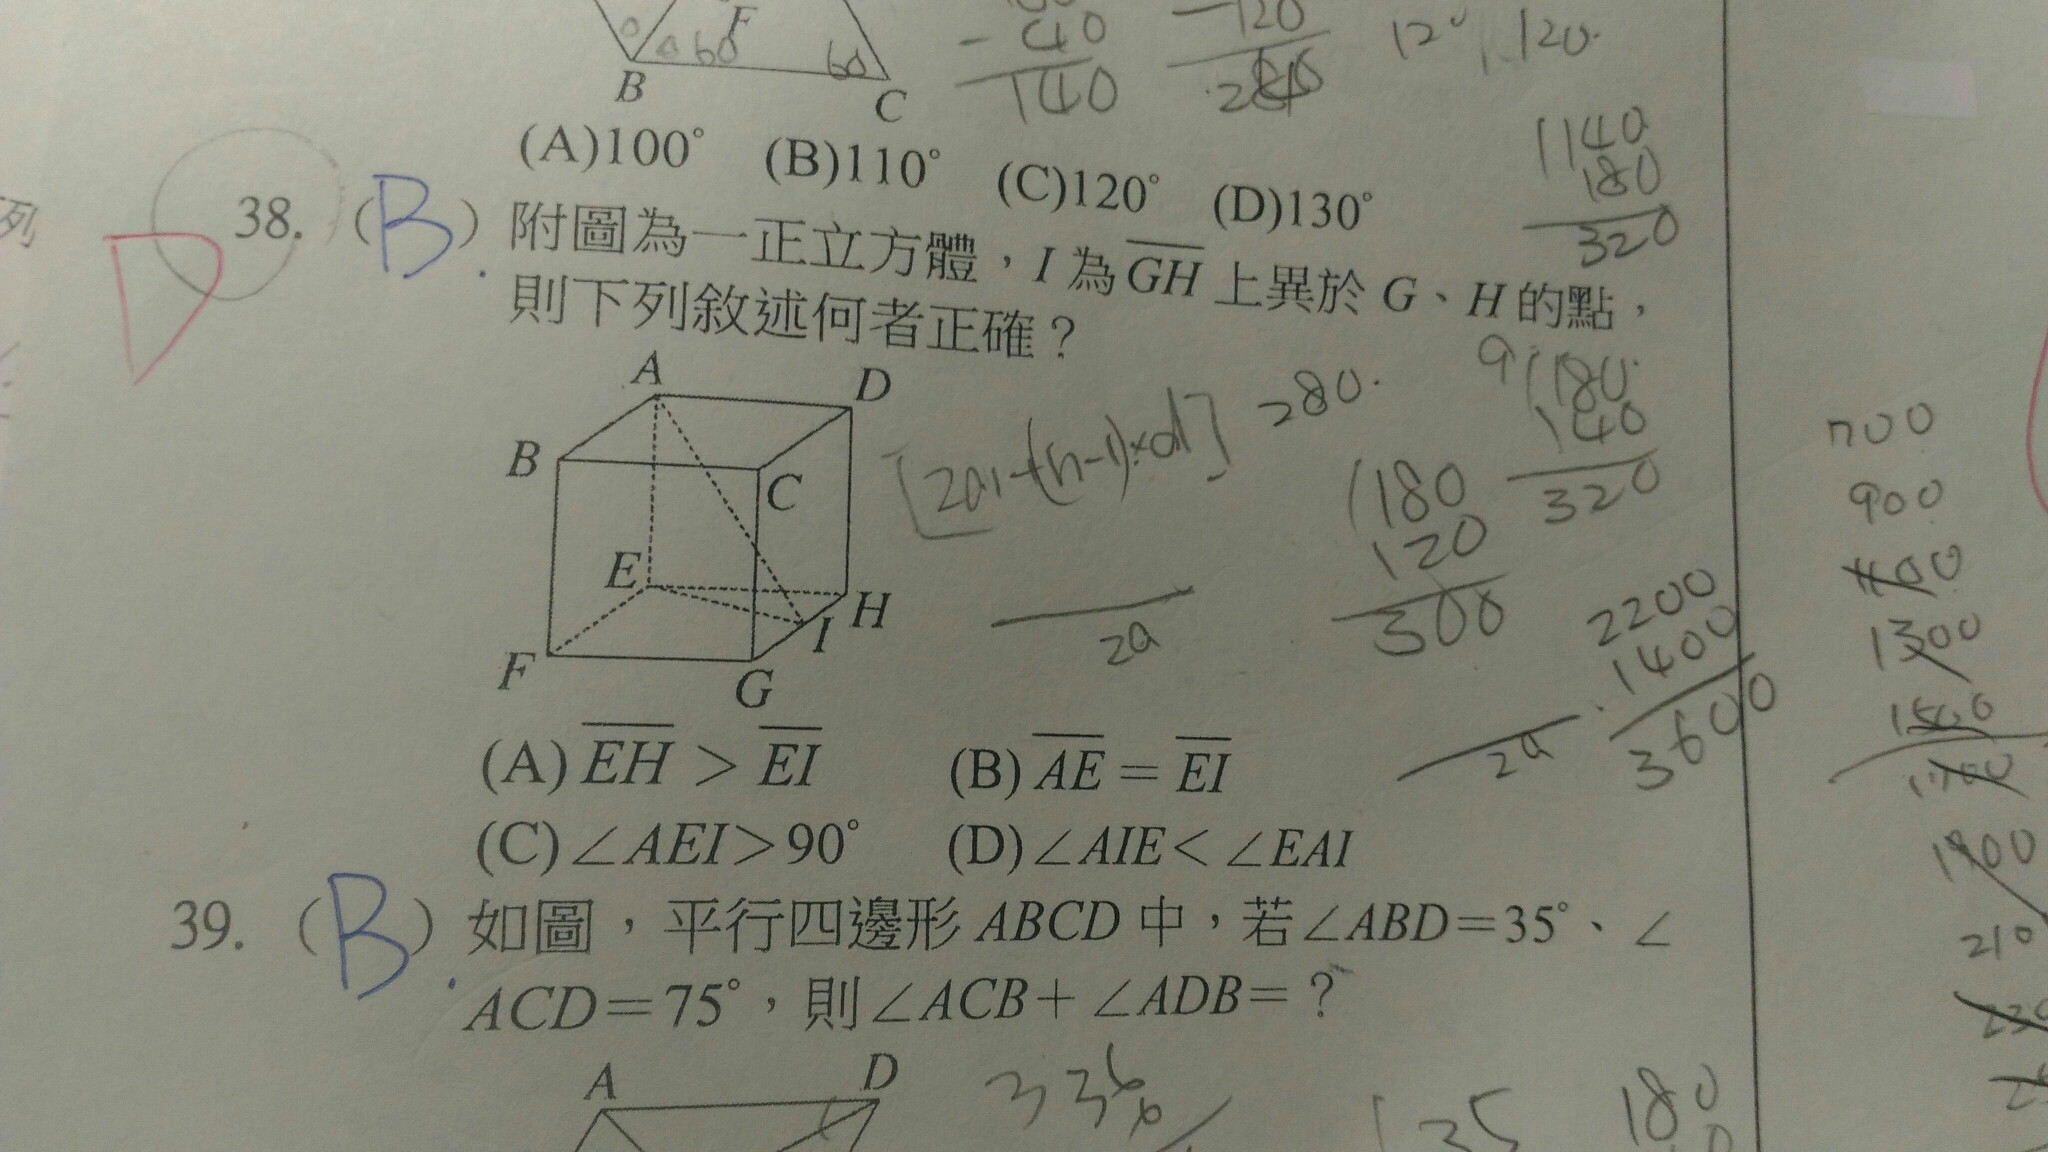 F
60
60
B
C
- 40
140
-120
120
120.
(A)100° (B)110° (C)120° (D)130°
1140
180
320
列
D
38. (B.) 附圖為一正立方體，I 為 GH 上異於 G、H 的點，
則下列敘述何者正確？
A
D
B
C
E
H
I
F
G
[2a1+(n-1)×d]
280.
9
180
140
320
180
120
300
2a
2200
1400
3600
2a
700
900
1300
1900
210
(A) EH > EI (B) AE = EI
(C)∠AEI>90° (D)∠AIE< ∠EAI
39. (B.) 如圖，平行四邊形 ABCD 中，若∠ABD=35°、∠
ACD=75°，則∠ACB+ ∠ADB=？
A
D
336
135
180